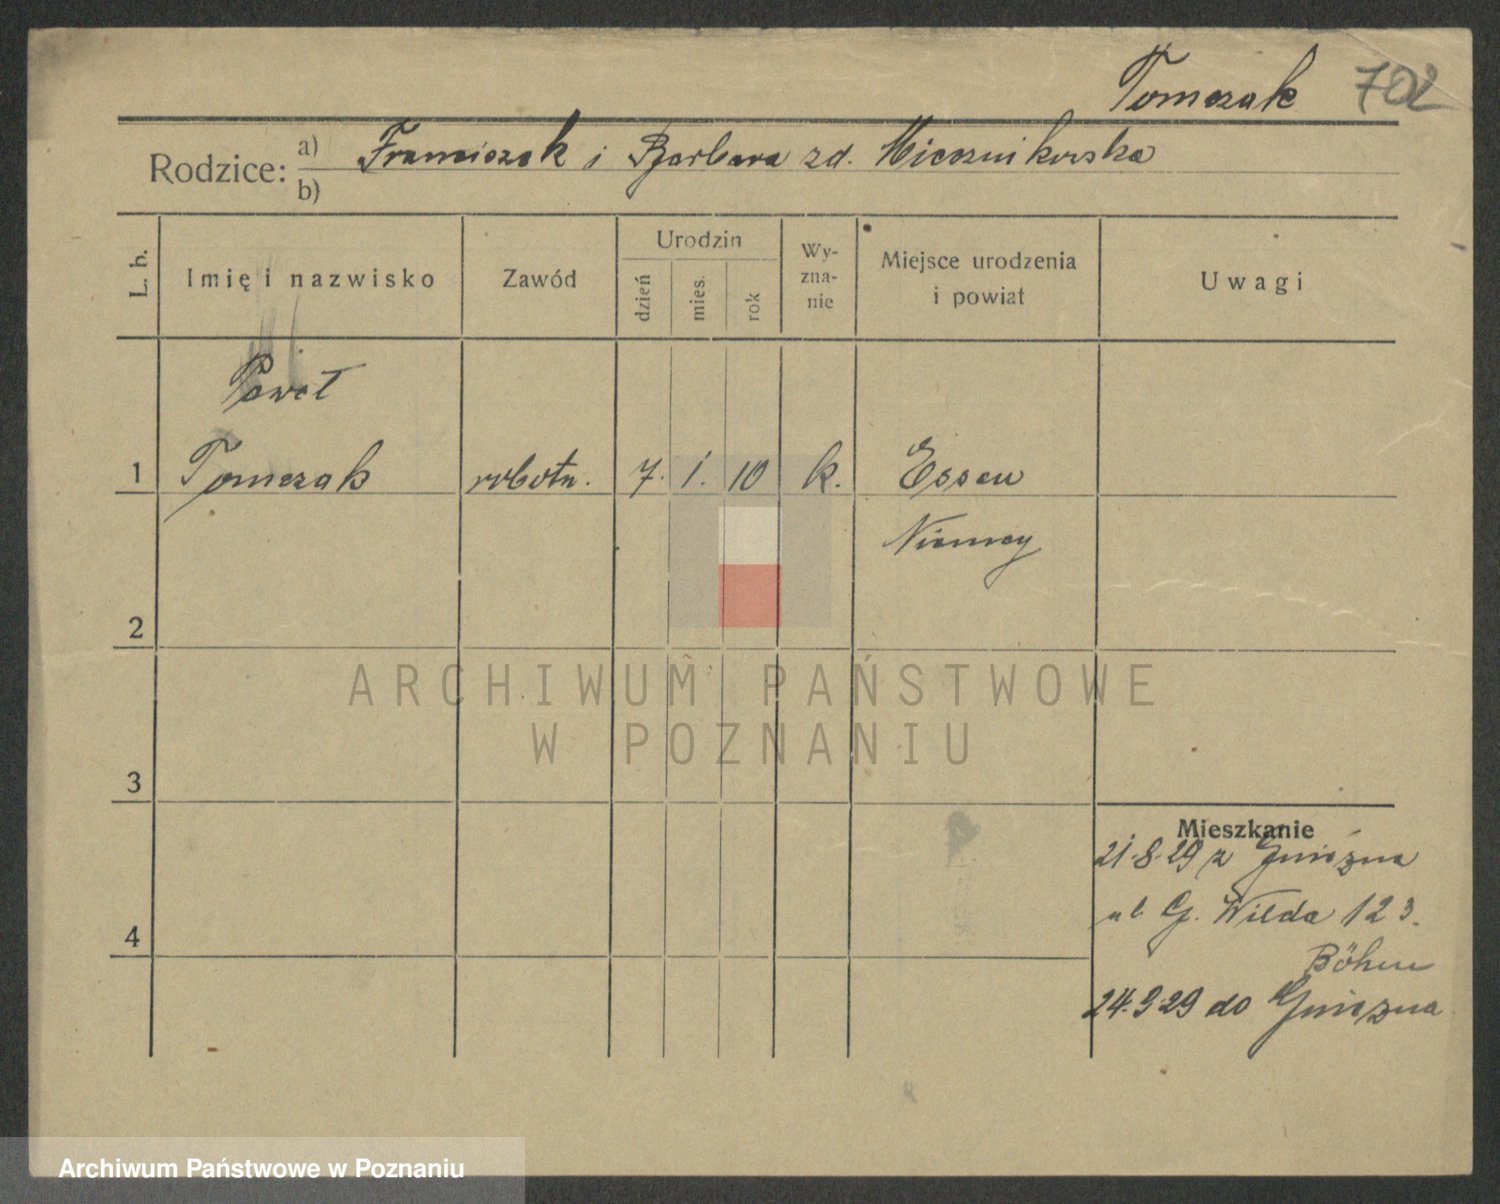 Tomczak 702
Rodzice: a) Franciszek i Barbara zd. Miecznikowska
b)
L. b. Imię i nazwisko Zawód Urodzin dzień mies. rok Wy-zna-nie Miejsce urodzenia i powiat Uwagi
Paweł
1 Tomczak robotn. 7. 1. 10 k. Essen
Niemcy
2
ARCHIWUM PAŃSTWOWE
W POZNANIU
3
Mieszkanie
21.8.29 z Gniezna
4 ul. G. Wilda 123.
Böhm
24.9.29 do Gniezna
Archiwum Państwowe w Poznaniu